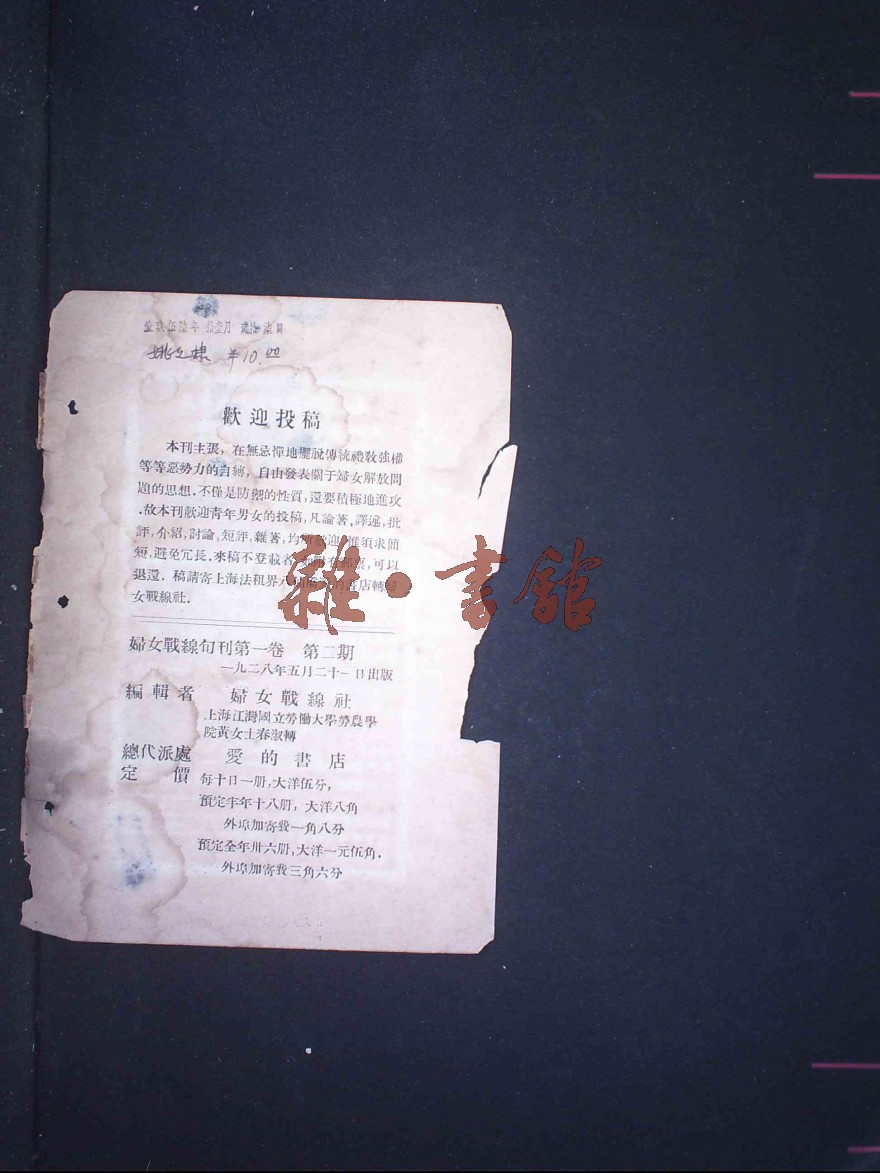 壹玖伍陸年 拾壹月 貳拾柒日
姚 ¥10.00
歡迎投稿
本刊主張，在無忌憚地擺脫傳統禮敎強權
等等惡勢力的自縛，自由發表關于婦女解放問
題的思想．不僅是防禦的性質，還要積極地進攻
．故本刊歡迎靑年男女的投稿，凡論著，譯述，批
評，介紹，討論，短評，雜著，均所歡迎，惟須求簡
短，避免冗長．來稿不登載者，如附有郵票，可以
退還．稿請寄上海法租界書店轉婦
女戰線社．
婦女戰線旬刊第一卷　第二期
一九二八年五月二十一日出版
編輯者　婦女戰線社
上海江灣國立勞働大學勞農學
院黃女士春淑轉
總代派處　愛的書店
定價　每十日一册，大洋伍分，
預定半年十八册，大洋八角
外埠加寄費一角八分
預定全年卅六册，大洋一元伍角．
外埠加寄費三角六分
雜·書館